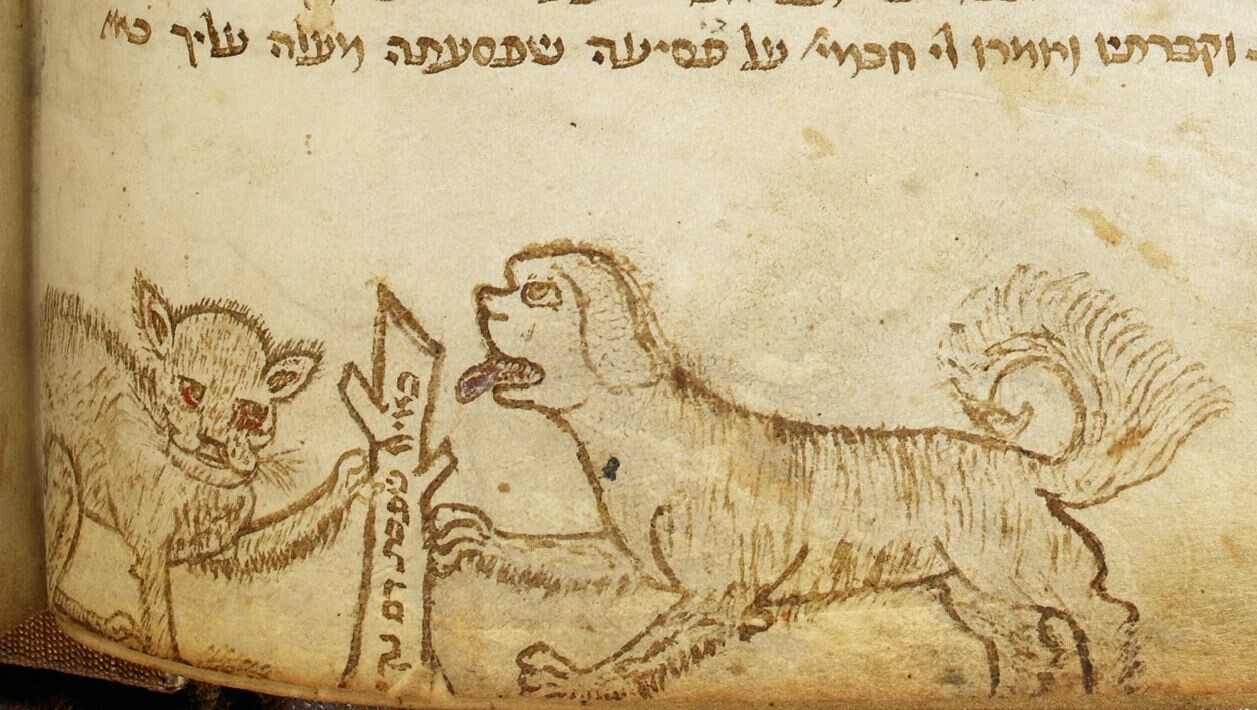 וקברתיו ואמרו לי חכמי' על פסיעה שפסעתה מעלה עליך
כאילו שפכת דם נקי